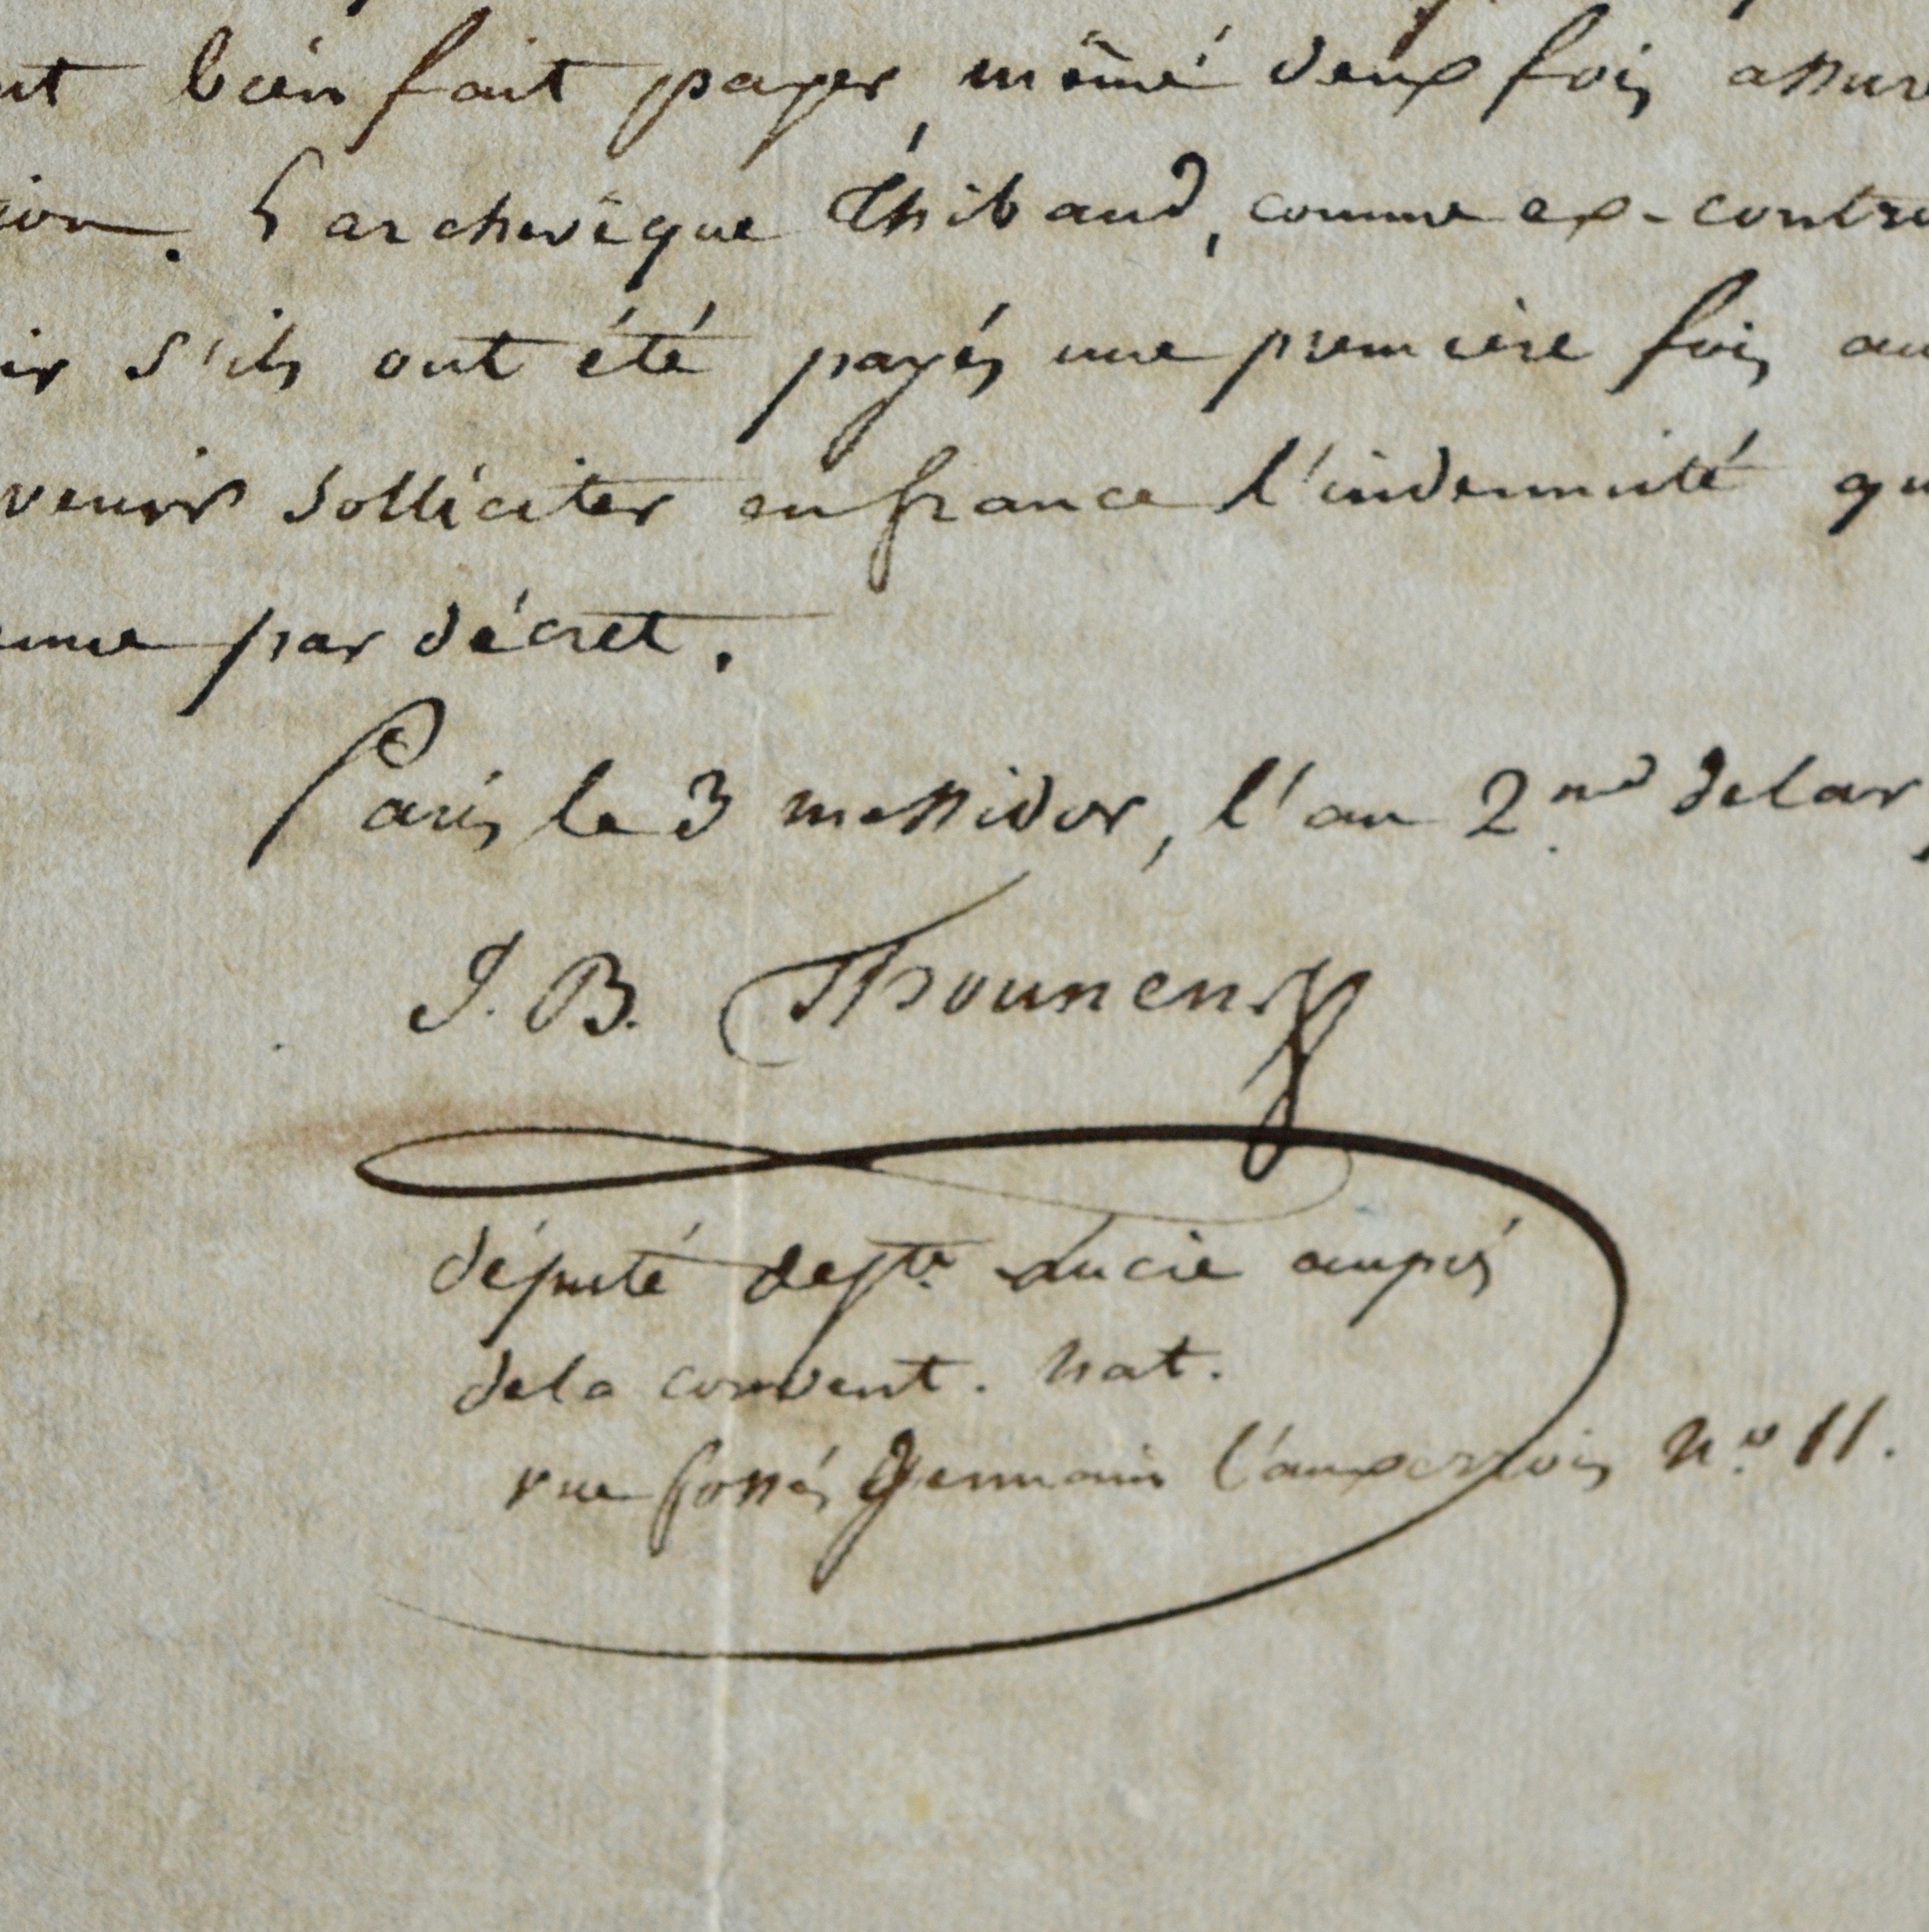 nt bien fait payer, même deux fois assure
ion. L'archevêque Thibaud, comme ex-contre
ir s'ils ont été payés une première fois au
venir solliciter en france l'indemnité qu
par décret.
Paris le 3 messidor, l'an 2nd de la r
J. B. Thounens
député de Ste Lucie auprès
de la convent. nat.
rue fossés Germain l'auxerrois No 11.